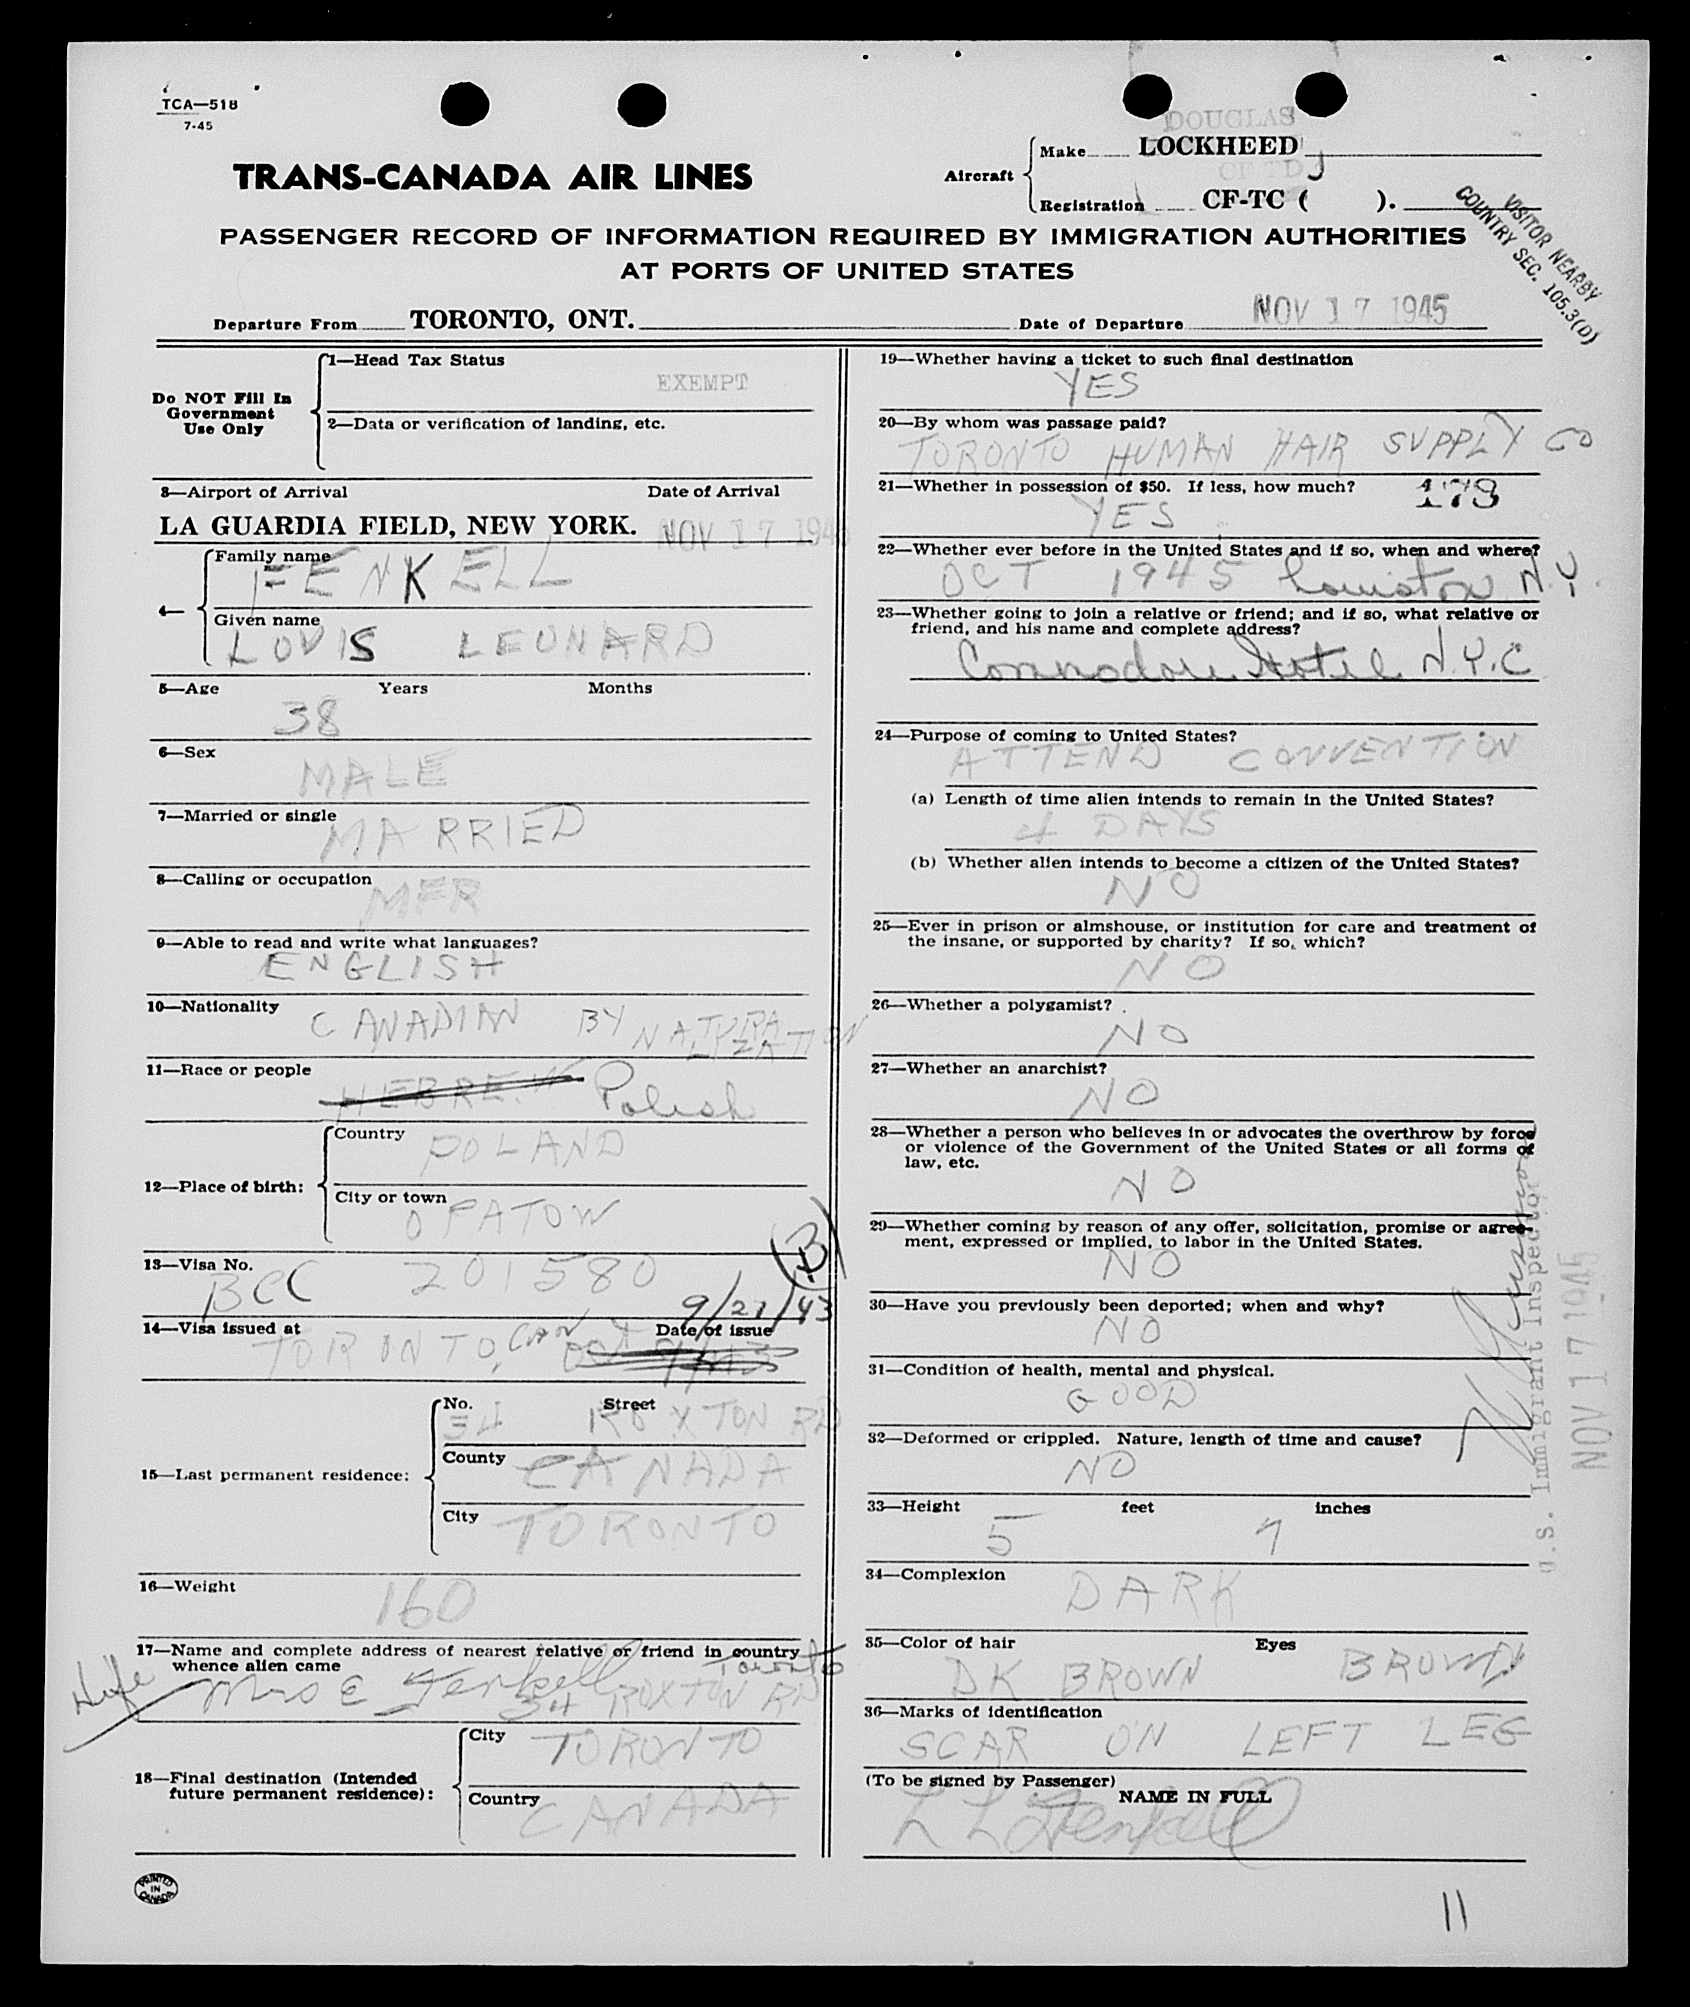 TCA—518
7-45
TRANS-CANADA AIR LINES
DOUGLAS
Aircraft
Make LOCKHEED
CF TD J
Registration CF-TC ( ).
VISITOR NEARBY
COUNTRY SEC. 105.3(D)
PASSENGER RECORD OF INFORMATION REQUIRED BY IMMIGRATION AUTHORITIES
AT PORTS OF UNITED STATES
Departure From TORONTO, ONT. Date of Departure NOV 17 1945
Do NOT Fill In
Government
Use Only
1—Head Tax Status
EXEMPT
2—Data or verification of landing, etc.
3—Airport of Arrival Date of Arrival
LA GUARDIA FIELD, NEW YORK. NOV 17 1945
4—
Family name
FENKELL
Given name
LOUIS LEONARD
5—Age Years Months
38
6—Sex
MALE
7—Married or single
MARRIED
8—Calling or occupation
MFR
9—Able to read and write what languages?
ENGLISH
10—Nationality
CANADIAN BY NATURA
LIZATION
11—Race or people
HEBREW Polish
12—Place of birth:
Country
POLAND
City or town
OPATOW
(B)
13—Visa No.
BCC 201580
9/21/43
14—Visa issued at Date of issue
TORONTO, CAN
15—Last permanent residence:
No. Street
34 ROXTON RD
County
CANADA
City
TORONTO
16—Weight
160
17—Name and complete address of nearest relative or friend in country
whence alien came
Toronto
Wife Mrs E Fenkell
34 ROXTON RD
18—Final destination (Intended
future permanent residence):
City
TORONTO
Country
CANADA
PRINTED
IN
CANADA
19—Whether having a ticket to such final destination
YES
20—By whom was passage paid?
TORONTO HUMAN HAIR SUPPLY CO
21—Whether in possession of $50. If less, how much?
YES
173
22—Whether ever before in the United States and if so, when and where?
OCT 1945 Lewiston N.Y.
23—Whether going to join a relative or friend; and if so, what relative or
friend, and his name and complete address?
Commodore Hotel N.Y.C
24—Purpose of coming to United States?
ATTEND CONVENTION
(a) Length of time alien intends to remain in the United States?
4 DAYS
(b) Whether alien intends to become a citizen of the United States?
NO
25—Ever in prison or almshouse, or institution for care and treatment of
the insane, or supported by charity? If so, which?
NO
26—Whether a polygamist?
NO
27—Whether an anarchist?
NO
28—Whether a person who believes in or advocates the overthrow by force
or violence of the Government of the United States or all forms of
law, etc.
NO
29—Whether coming by reason of any offer, solicitation, promise or agree-
ment, expressed or implied, to labor in the United States.
NO
30—Have you previously been deported; when and why?
NO
31—Condition of health, mental and physical.
GOOD
32—Deformed or crippled. Nature, length of time and cause?
NO
33—Height feet inches
5 7
34—Complexion
DARK
35—Color of hair Eyes
DK BROWN BROWN
36—Marks of identification
SCAR ON LEFT LEG
(To be signed by Passenger)
NAME IN FULL
L L Fenkell
U.S. Immigrant Inspector
NOV 17 1945
11